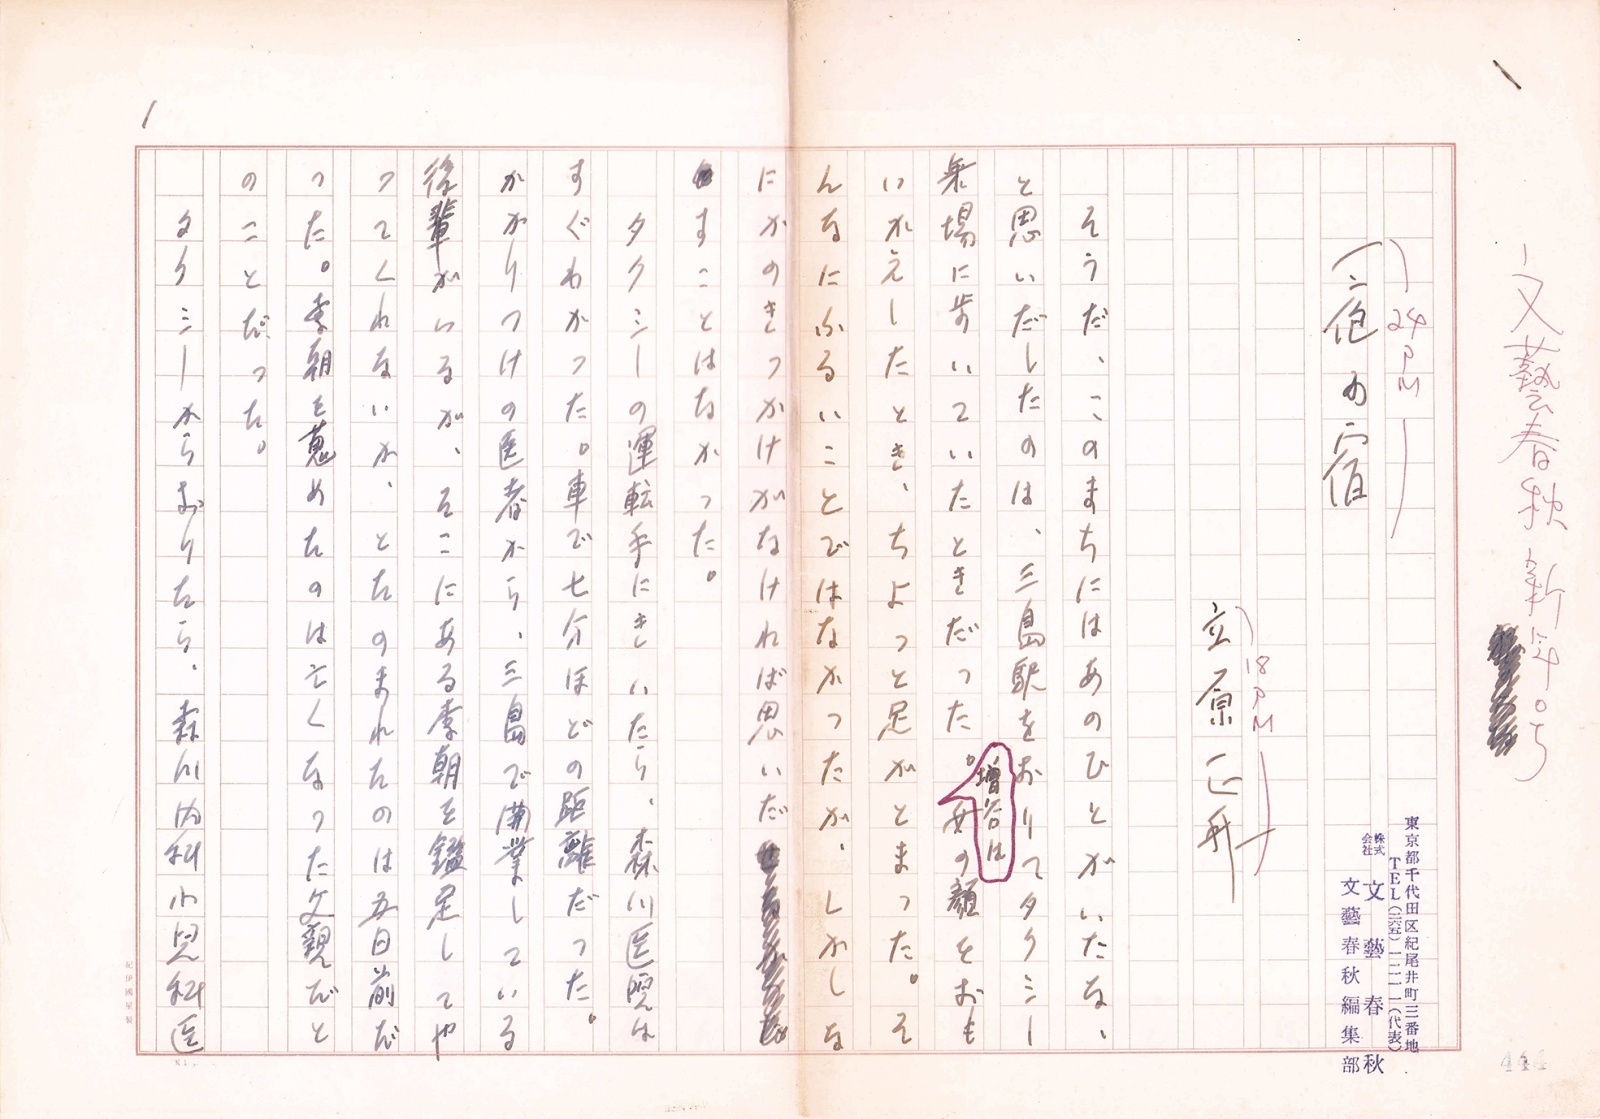 文藝春秋 新年号
24PM
の宿
18PM
立原正秋
東京都千代田区紀尾井町三番地
TEL(二六五)一二一一(代表)
株式会社 文藝春秋
文藝春秋編集部
そうだ、このまちにはあのひとがいたな、
と思いだしたのは、三島駅をおりてタクシー
乗場に歩いていたときだった。増谷は女の顔をおも
いかえしたとき、ちょっと足がとまった。そ
んなにふるいことではなかったが、しかしな
にかのきっかけがなければ思いだ
すことはなかった。
タクシーの運転手にきいたら、森川医院は
すぐわかった。車で七分ほどの距離だった。
かかりつけの医者から、三島で開業している
後輩がいるが、そこにある李朝を鑑定してや
ってくれないか、とたのまれたのは五日前だ
った。李朝を蒐めたのは亡くなった父親だと
のことだった。
タクシーからおりたら、森川内科小児科医
1
紀伊國屋製
444